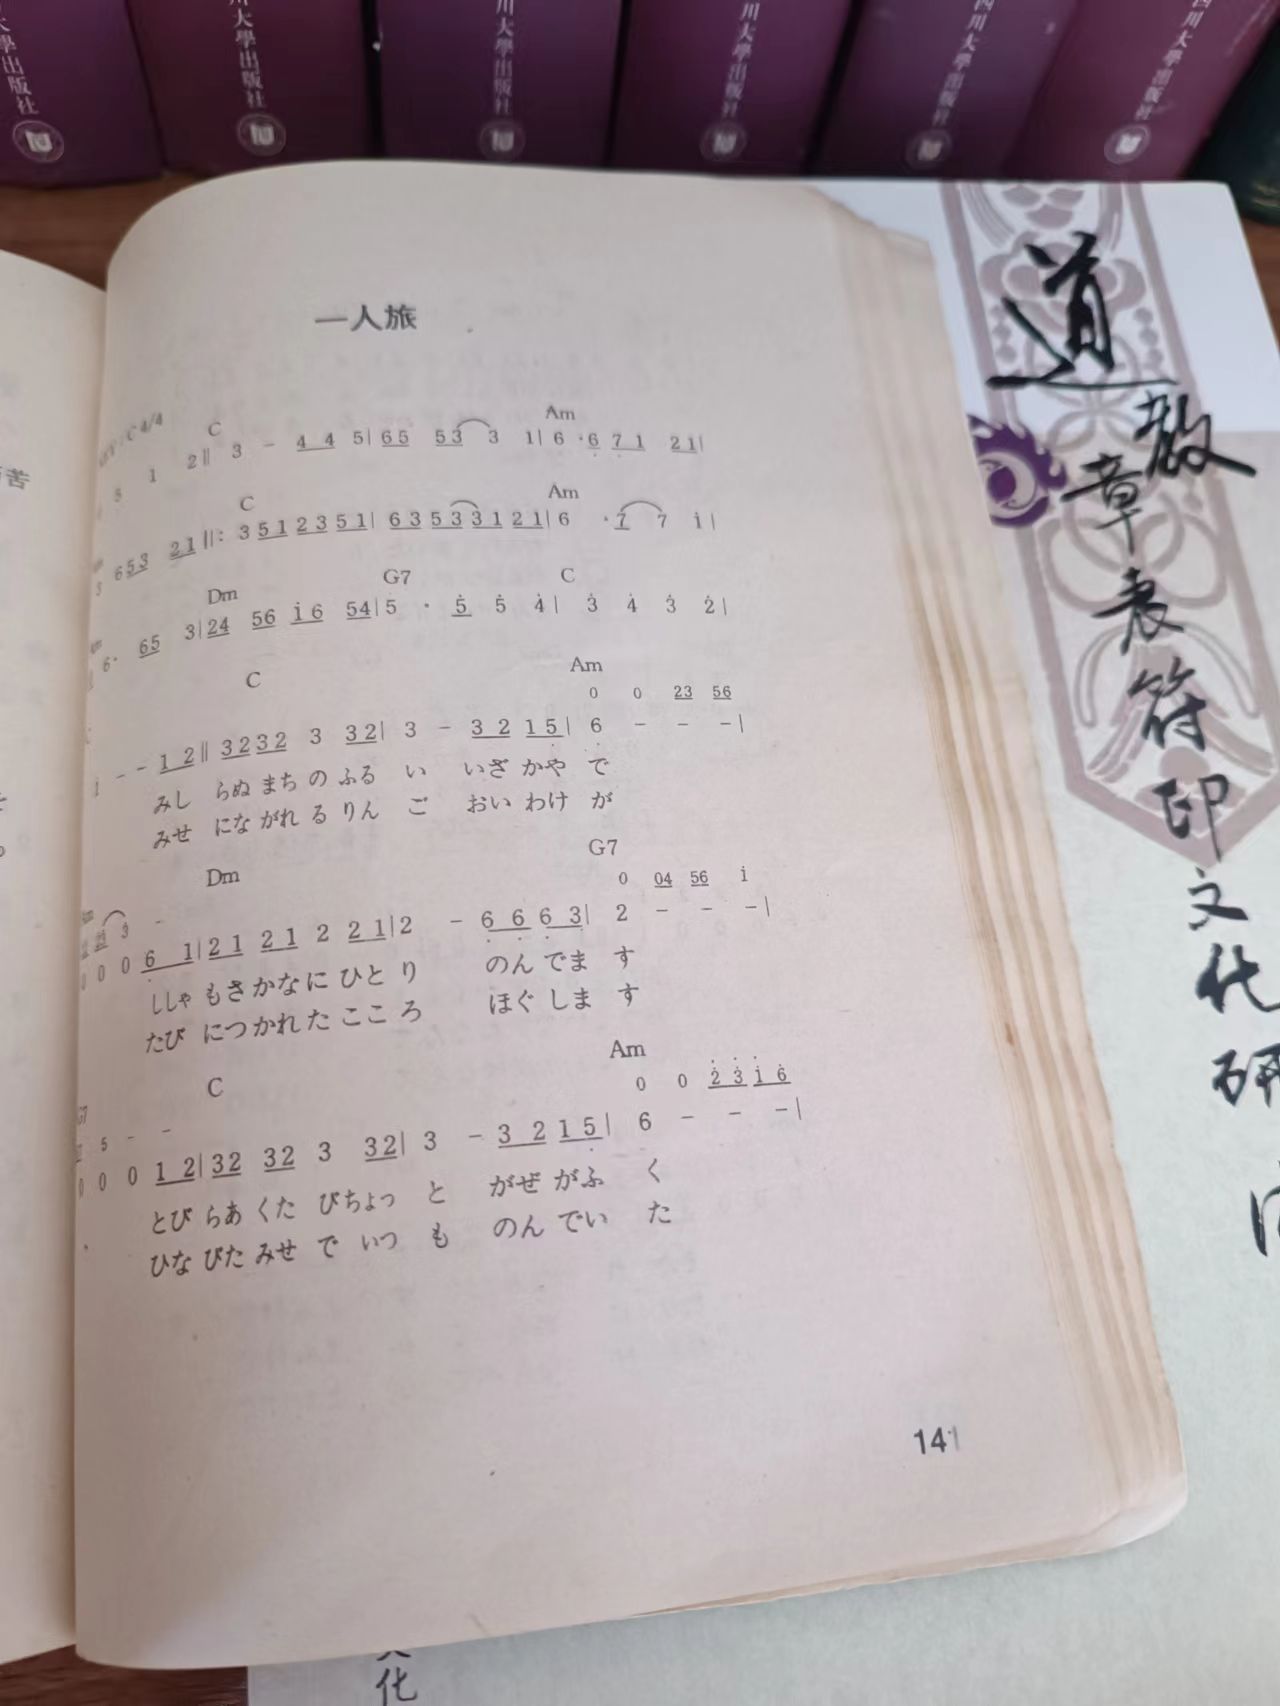 川大學出版社
川大學出版社
川大學出版社
川大學出版社
四川大學出版社
四川大學出版社
苦
一人旅
C 4/4 C Am
5 1 2‖ 3 - 4 4 5| 65 53 3 1| 6 ·6 7 1 21|
C Am
5 653 21‖: 3 51 23 51| 63 53 31 21| 6 ·7 7 i|
Dm G7 C
6· 65 3| 24 56 i6 54| 5 · 5 5 4| 3 4 3 2|
C Am
0 0 23 56
i - - 1 2‖ 32 32 3 32| 3 - 3 2 1 5| 6 - - -|
みし らぬ まち の ふる い いざ かや で
みせ にな がれ る りん ご おい わけ が
Dm G7
3 - 0 04 56 i
0 0 0 6 1| 2 1 2 1 2 2 1| 2 - 6 6 6 3| 2 - - -|
ししゃ もさ かな に ひと り のん でま す
たび につ かれ た ここ ろ ほぐ しま す
C Am
G7 0 0 2 3 i 6
5 - -
0 0 0 1 2| 32 32 3 32| 3 - 3 2 1 5| 6 - - -|
とび らあ くた びちょっ と がぜ がふ く
ひな びた みせ で いつ も のん でい た
141
道教章表符印文化研
化